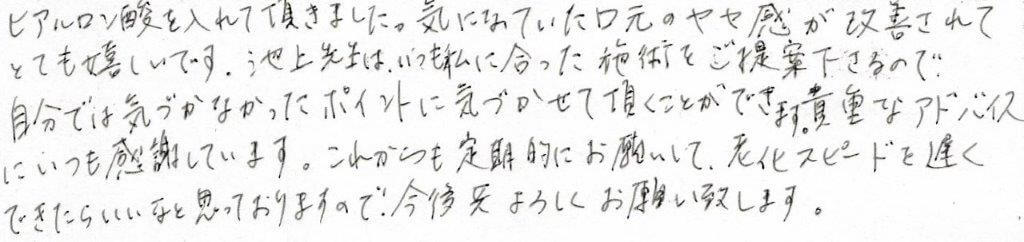 ヒアルロン酸を入れて頂きました。気になっていた口元のヤセ感が改善されて
とても嬉しいです。池上先生は、いつも私に合った施術をご提案下さるので、
自分では気づかなかったポイントに気づかせて頂くことができます。貴重なアドバイス
にいつも感謝しています。これからも定期的にお願いして、老化スピードを遅く
できたらいいなと思っておりますので、今後共よろしくお願い致します。